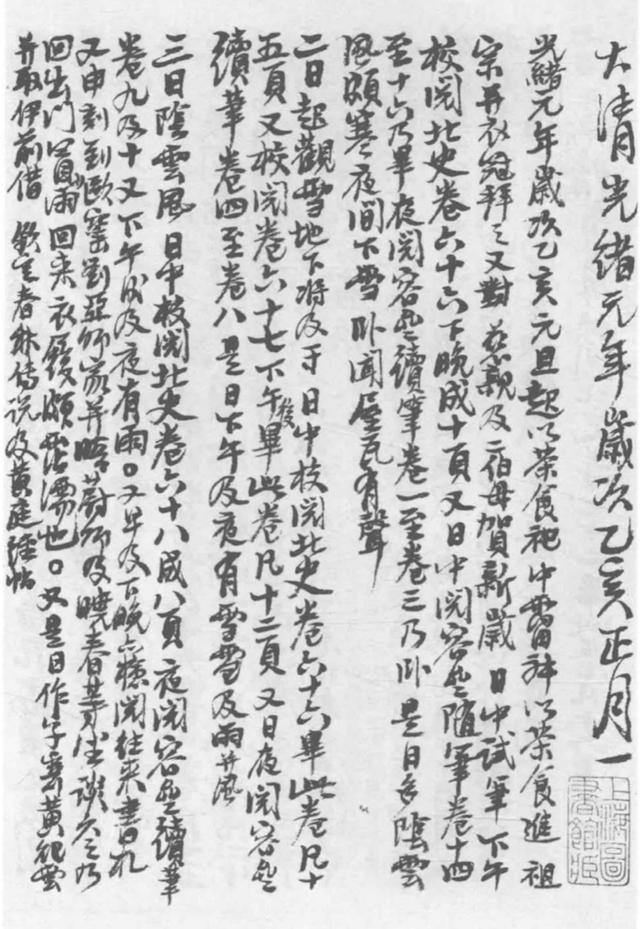 大清光緒元年歲次乙亥正月一
光緒元年歲次乙亥元旦起以茶食祀中霤神以茶食進 祖
宗并衣冠拜之又對 慈親及二伯母賀新歲 日中試筆下午
校閱北史卷六十六下晚成十頁又日中閱容齋隨筆卷十四
至十六乃畢夜閱容齋續筆卷一至卷三乃卧是日多陰雲
風頗寒夜間下雪卧聞屋瓦有聲
二日起觀雪地下將及寸 日中校閱北史卷六十六畢此卷凡十
五頁又校閱卷六十七下午後畢此卷凡十二頁 又日夜閱容齋
續筆卷四至卷八是日下午及夜有雪雪及雨并風
三日陰雲風 日中校閱北史卷六十八成八頁夜閱容齋續筆
卷九及十又下午及夜有雨。又早及下晚檢閱往來書札
又申刻到 劉亞師家并晤蔚師及曉春等坐談久之乃
回出門冒雨回來衣履頗霑濡也。又是日作字
并取伊前借 欽定春秋傳說及黃庭經帖
上海圖書館藏